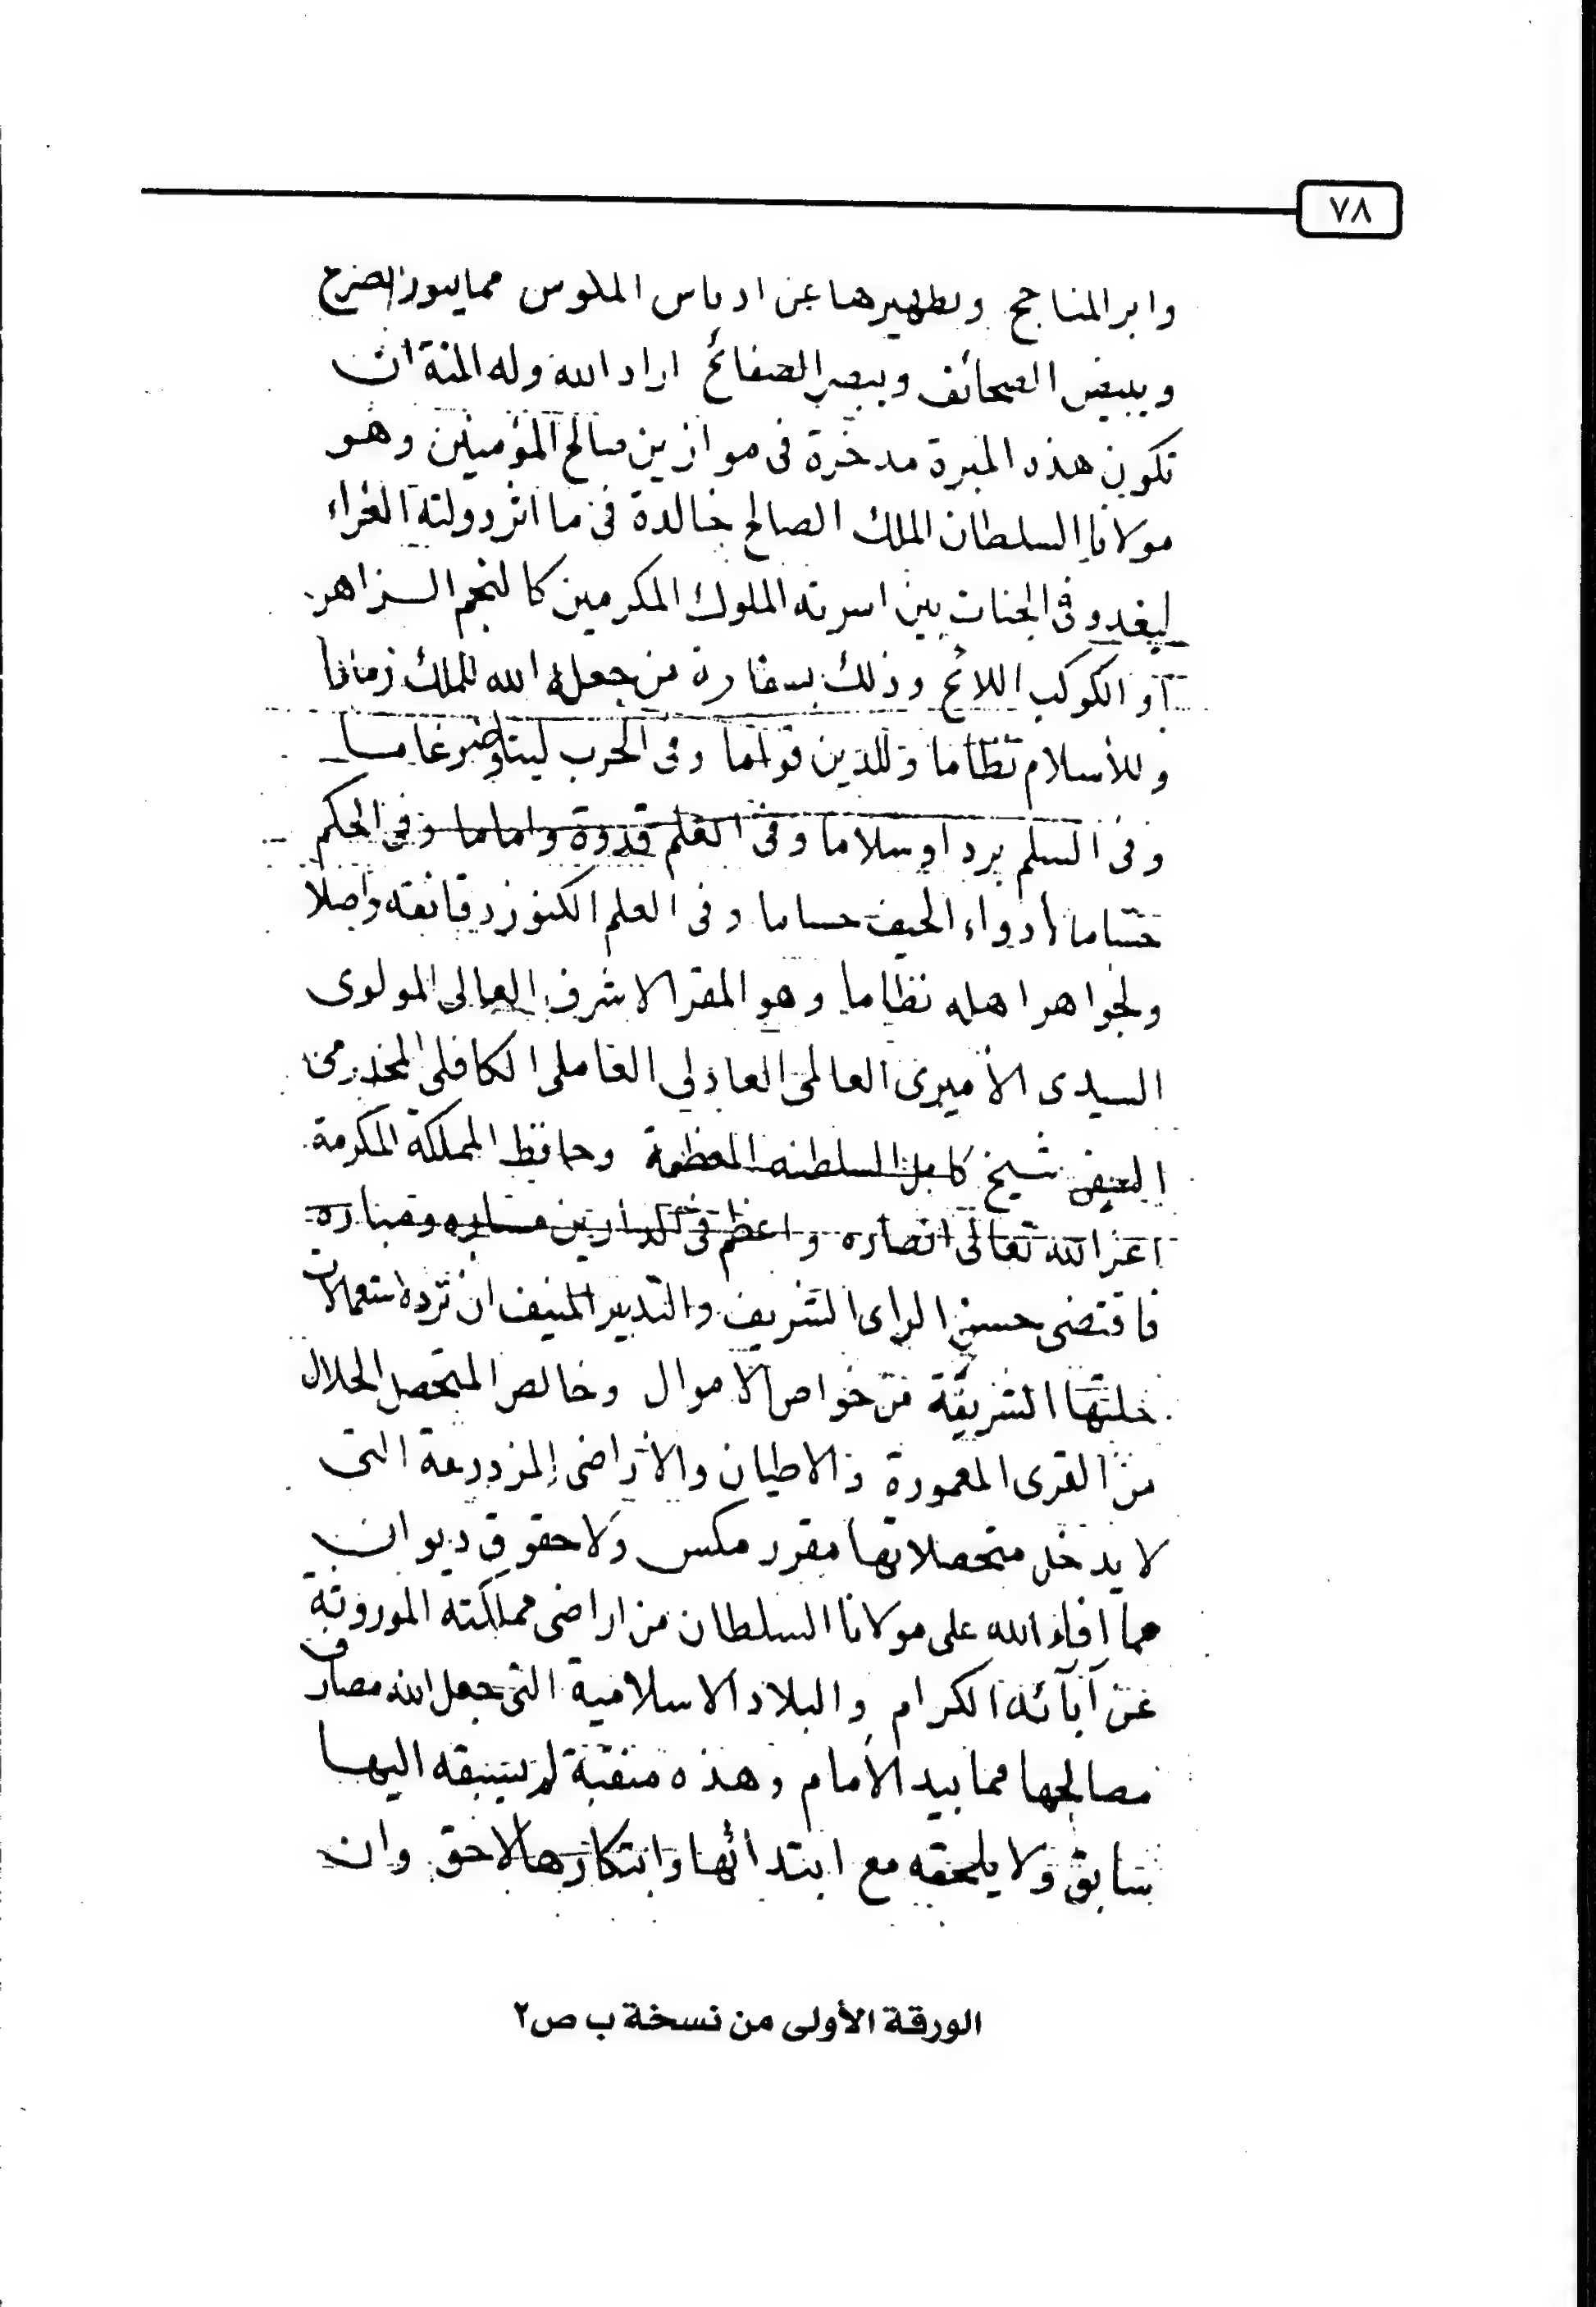 ٧٨
وابر المناجح وتطهيرها عن ادناس الملوس مما ينور الضرح
ويبيض الصحائف ويبصر الصفائح اراد الله وله المنة ان
تكون هذه المبرة مدخرة في موازين صالح المؤمنين وهو
مولانا السلطان الملك الصالح خالدة في مآثر دولته الغراء
ليغدو في الجنات بين اسرته الملوك المكرمين كالنجم الزاهر
او الكوكب اللائح وذلك بسفارة من جعله الله للملك زماما
وللأسلام نظاما وللدين قواما وفى الحرب ليثا وضرغاما
وفى السلم بردا وسلاما وفى العلم قدوة واماما وفى الحكم
حساما لأدواء الحيف حساما وفى العلم الكنوز دقائقه واصلا
ولجواهر اهله نظاما وهو المقر الاشرف العالى المولوى
السيدى الأميرى العالمى العادلى الكافلى المخدومى
شيخ كافل السلطنه المعظمة وحافظ المملكة المكرمة
اعز الله تعالى انصاره واعظم فى الدارين مساره ومباره
فاقتضى حسن الراى الشريف والتدبير المنيف ان
الشريفة من خواص الاموال وخالص المتحصل الحلال
من القرى المعمورة والاطيان والأراضى المزدرعة التى
لا يدخل متحصلاتها مقرر مكس ولا حقوق ديوان
مما افاء الله على مولانا السلطان من اراضى مملكته الموروثة
عن آبائه الكرام والبلاد الاسلامية التى جعل الله مصارف
مصالحها مما بيد الأمام وهذه منقبة لم يسبقه اليها
سابق ولا يلحقه مع ابتدائها وابتكارها لاحق وان
الورقة الأولى من نسخة ب ص٢